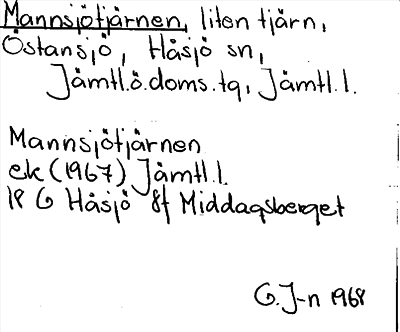 Mannsjötjärnen, liten tjärn,
Östansjö, Håsjö sn,
Jämtl.ö.doms.tg, Jämtl.l.
Mannsjötjärnen
ek (1967) Jämtl.l.
18 G Håsjö 8f Middagsberget
G.J-n 1968